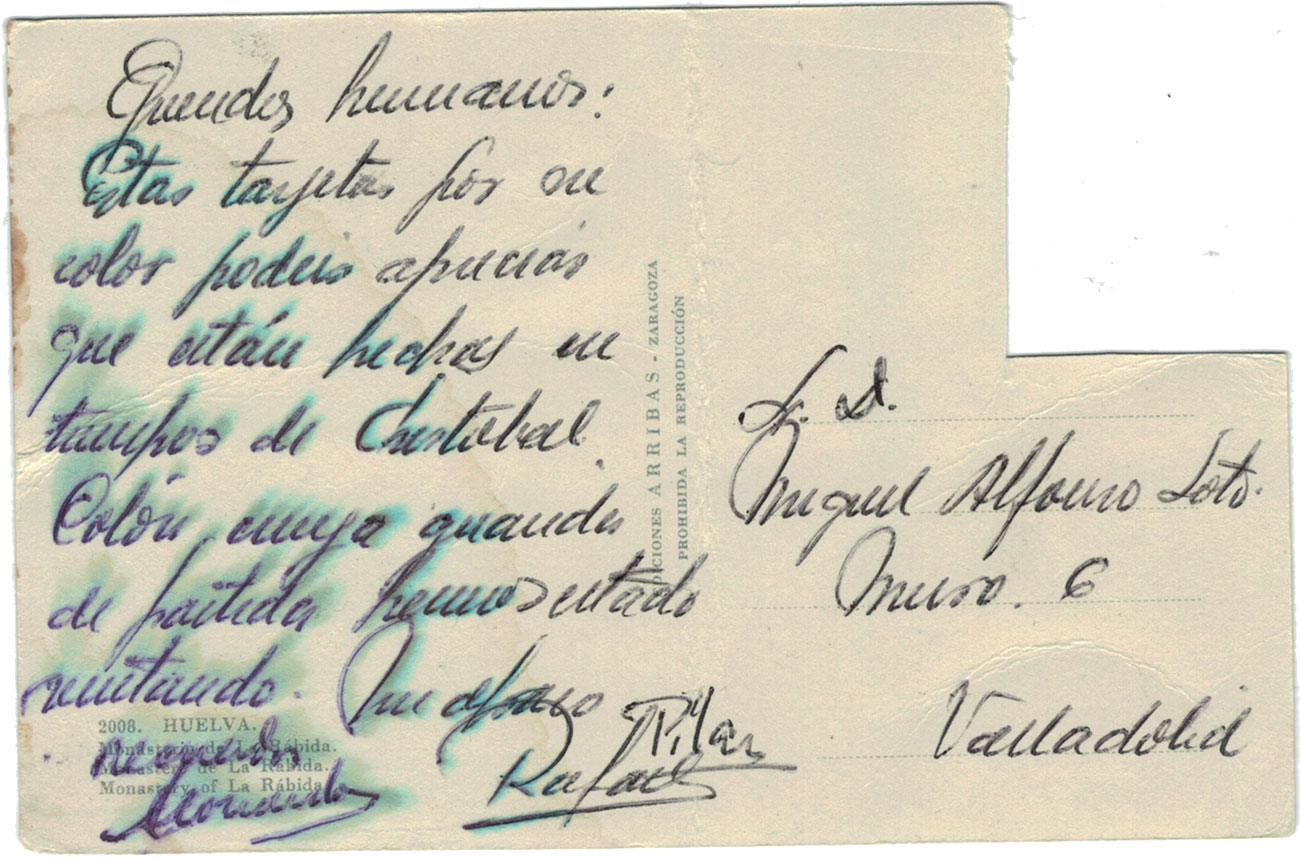 Queridos hermanos:
Estas tarjetas por su
color podeis apreciar
que están hechas en
tiempos de Cristobal
Colón, cuya
de partida hemos estado
visitando. Un abrazo
Pilar
Rafael
recuerdo
2008. HUELVA.
Monasterio de La Rábida.
Monastery de La Rábida.
Monastery of La Rábida.
EDICIONES ARRIBAS - ZARAGOZA
PROHIBIDA LA REPRODUCCIÓN
Sr. D.
Miguel Alfonso Soto.
Muro. 6
Valladolid